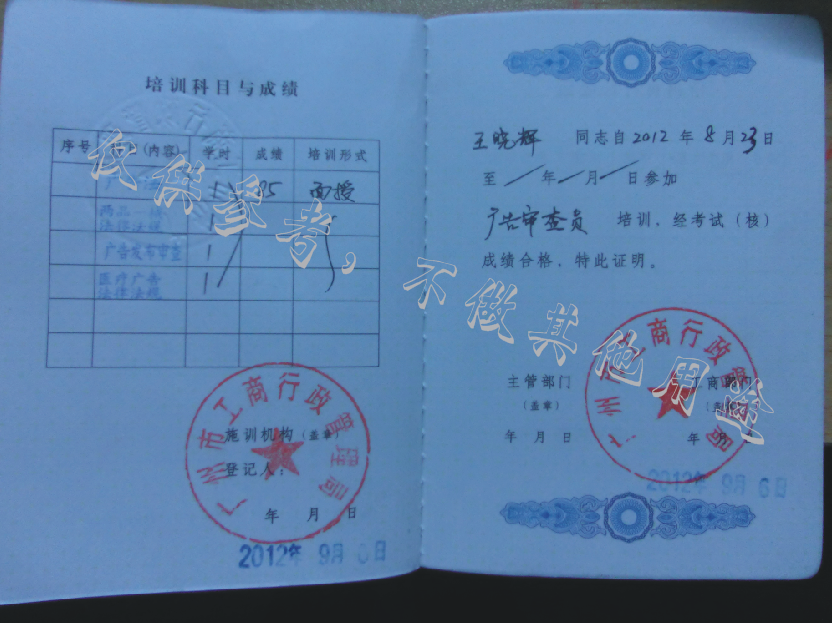 培训科目与成绩
序号 (内容) 学时 成绩 培训形式
广 1 85 面授
两品一械
法律法规 1
广告发布审查 1
医疗广告
法律法规 1
广州市工商行政管理局
施训机构（盖章）
登记人：
年 月 日
2012年 9月 6日
王晓辉 同志自2012年8月23日
至／年／月／日参加
广告审查员 培训、经考试（核）
成绩合格，特此证明。
主管部门 工商部门
（盖章） （盖章）
年 月 日 年 月 日
广州市工商行政管理局
2012年 9月 6日
仅供参考，不做其他用途